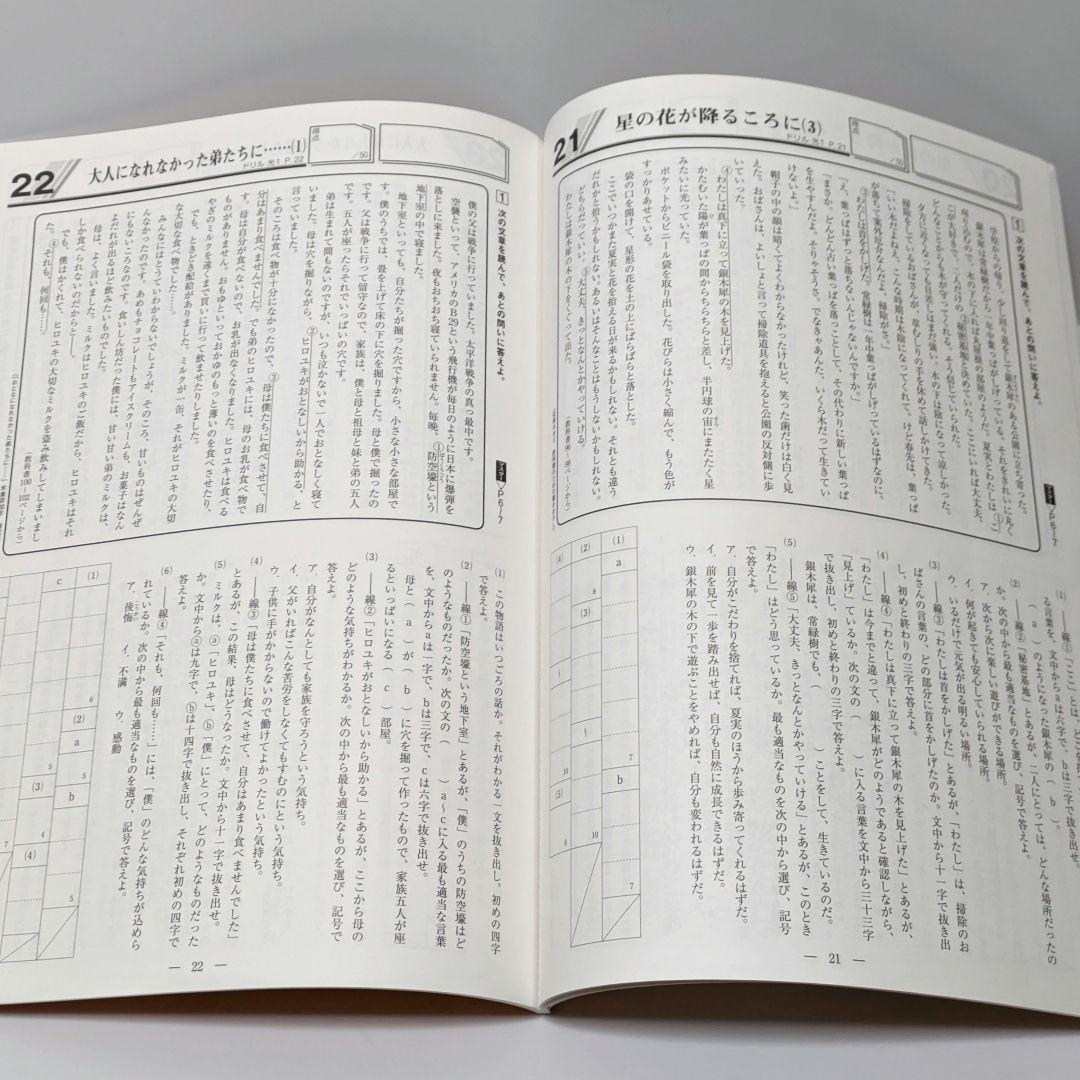 21
星の花が降るころに(3)
ドリル 光1 P.21
得点
/50
1 次の文章を読んで、あとの問いに答えよ。
マスター P6〜7
学校からの帰り、少し回り道をして銀木犀のある公園に立ち寄った。
銀木犀は常緑樹だから一年中葉っぱがしげっている。それをきれいに丸く
刈り込むので、木の下に入れば丸屋根の部屋のようだ。夏実とわたしは、①こ
こが大好きで、二人だけの②秘密基地と決めていた。ここにいれば大丈夫、
どんなことからも木が守ってくれる。そう信じていられた。
夕方に近くなっても日差しはまだ強い。木の下は陰になって涼しかった。
掃除をしているおばさんが、草むしりの手を休めて話しかけてきた。
「いい木だよねえ、こんな時期は木陰になってくれて。けど春先は、葉っぱ
が落ちて案外厄介なんだよ、掃除がさ。」
③わたしは首をかしげた。常緑樹は一年中葉っぱがしげっているはずなのに。
「え、葉っぱはずっと落ちないんじゃないんですか。」
「まさか。どんどん古い葉っぱを落っことして、その代わりに新しい葉っぱ
を生やすんだよ。そりゃそうさ。でなきゃあんた、いくら木だって生きてい
けないよ。」
帽子の中の顔は暗くてよくわからなかったけれど、笑った歯だけは白く見
えた。おばさんは、よいしょと言って掃除道具を抱えると公園の反対側に歩
いていった。
④わたしは真下に立って銀木犀の木を見上げた。
かたむいた陽が葉っぱの間からちらちらと差し、半円球の宙にまたたく星
みたいに光っていた。
ポケットからビニール袋を取り出した。花びらは小さく縮んで、もう色が
すっかりあせている。
袋の口を開けて、星形の花を土の上にぱらぱらと落とした。
ここでいつかまた夏実と花を拾える日が来るかもしれない。それとも違う
だれかと拾うかもしれない。あるいはそんなことはもうしないかもしれない。
どちらだっていい。⑤大丈夫、きっとなんとかやっていける。
わたしは銀木犀の木の下をくぐって出た。
(教科書96〜98ページから)
(1) ――線①「ここ」とは、ど
る言葉を、文中からaは六字で、bは三字で抜き出せ。
( a )のようになった銀木犀の( b )。
(2) ――線②「秘密基地」とあるが、二人にとっては、どんな場所だったの
か。次の中から最も適当なものを選び、記号で答えよ。
ア、次から次に楽しい遊びができる場所。
イ、何が起きても安心していられる場所。
ウ、いるだけで元気が出る明るい場所。
(3) ――線③「わたしは首をかしげた」とあるが、「わたし」は、掃除のお
ばさんの言葉の、どの部分に首をかしげたのか。文中から十一字で抜き出
し、初めと終わりの三字で答えよ。
(4) ――線④「わたしは真下に立って銀木犀の木を見上げた」とあるが、
「わたし」は今までと違って、銀木犀がどのようであると確認しながら、
「見上げ」ているか。次の文の( )に入る言葉を文中から三十三字
で抜き出し、初めと終わりの三字で答えよ。
銀木犀は、常緑樹でも、( )ことをして、生きているのだ。
(5) ――線⑤「大丈夫、きっとなんとかやっていける」とあるが、このとき
「わたし」はどう思っているか。最も適当なものを次の中から選び、記号
で答えよ。
ア、自分がこだわりを捨てれば、夏実のほうから歩み寄ってくれるはずだ。
イ、前を見て一歩を踏み出せば、自分も自然に成長できるはずだ。
ウ、銀木犀の木の下で遊ぶことをやめれば、自分も変われるはずだ。
(1)
a
b
(2)
(3)
(4)
(5)
— 21 —
22
大人になれなかった弟たちに……(1)
ドリル 光1 P.22
得点
/50
1 次の文章を読んで、あとの問いに答えよ。
マスター P6〜7
僕の父は戦争に行っていました。太平洋戦争の真っ最中です。
空襲といって、アメリカのB29という飛行機が毎日のように日本に爆弾を
落としに来ました。夜もおちおち寝ていられません。毎晩、①防空壕という
地下室の中で寝ました。
地下室といっても、自分たちが掘った穴ですから、小さな小さな部屋で
す。僕のうちでは、畳を上げて床の下に穴を掘りました。母と僕で掘ったの
です。父は戦争に行って留守なので、家族は、僕と母と祖母と妹と弟の五人
です。五人が座ったらそれでいっぱいの穴です。
弟は生まれて間もないのですが、いつも泣かないで一人でおとなしく寝て
いました。母は穴を掘りながら、②ヒロユキがおとなしいから助かる、と
言っていました。
そのころは食べ物が十分になかったので、③母は僕たちに食べさせて、自
分はあまり食べませんでした。でも弟のヒロユキには、母のお乳が食べ物で
す。母は自分が食べないので、お乳が出なくなりました。ヒロユキは食べる
ものがありません。おもゆといっておかゆのもっと薄いのを食べさせたり、
やぎのミルクを遠くまで買いに行って飲ませたりしました。
でも、ときどき配給がありました。ミルクが一缶、それがヒロユキの大切
な大切な食べ物でした……。
みんなにはとうていわからないでしょうが、そのころ、甘いものはぜんぜ
んなかったのです。あめもチョコレートもアイスクリームも、お菓子はなん
にもないころなのです。食いしん坊だった僕には、甘い甘い弟のミルクは、
よだれが出るほど飲みたいものでした。
母は、よく言いました。ミルクはヒロユキのご飯だから、ヒロユキはそれ
しか食べられないのだからと――。
でも、僕はかくれて、ヒロユキの大切なミルクを盗み飲みしてしまいまし
た。④それも、何回も……。
(教科書100〜102ページから)
(1) この物語はいつごろの話か。それがわかる一文を抜き出し、初めの四字
で答えよ。
(2) ――線①「防空壕という地下室」とあるが、「僕」のうちの防空壕はど
のようなものだったか。次の文の( )a〜cに入る最も適当な言葉
を、文中からaは一字で、bは三字で、cは六字で抜き出せ。
母と( a )が( b )に穴を掘って作ったもので、家族五人が座
るといっぱいになる( c )部屋。
(3) ――線②「ヒロユキがおとなしいから助かる」とあるが、ここから母の
どのような気持ちがわかるか。次の中から最も適当なものを選び、記号で
答えよ。
ア、自分がなんとしても家族を守ろうという気持ち。
イ、父がいればこんな苦労をしなくてもすむのにという気持ち。
ウ、子供に手がかからないので働けてよかったという気持ち。
(4) ――線③「母は僕たちに食べさせて、自分はあまり食べませんでした」
とあるが、この結果、母はどうなったか。文中から十一字で抜き出せ。
(5) ミルクは、ⓐ「ヒロユキ」、ⓑ「僕」にとって、どのようなものだった
か。文中からⓐは九字で、ⓑは十四字で抜き出し、それぞれ初めの四字で
答えよ。
(6) ――線④「それも、何回も……」には、「僕」のどんな気持ちが込めら
れているか。次の中から最も適当なものを選び、記号で答えよ。
ア、後悔 イ、不満 ウ、感動
(1)
c
(2)
a
b
(3)
(4)
— 22 —